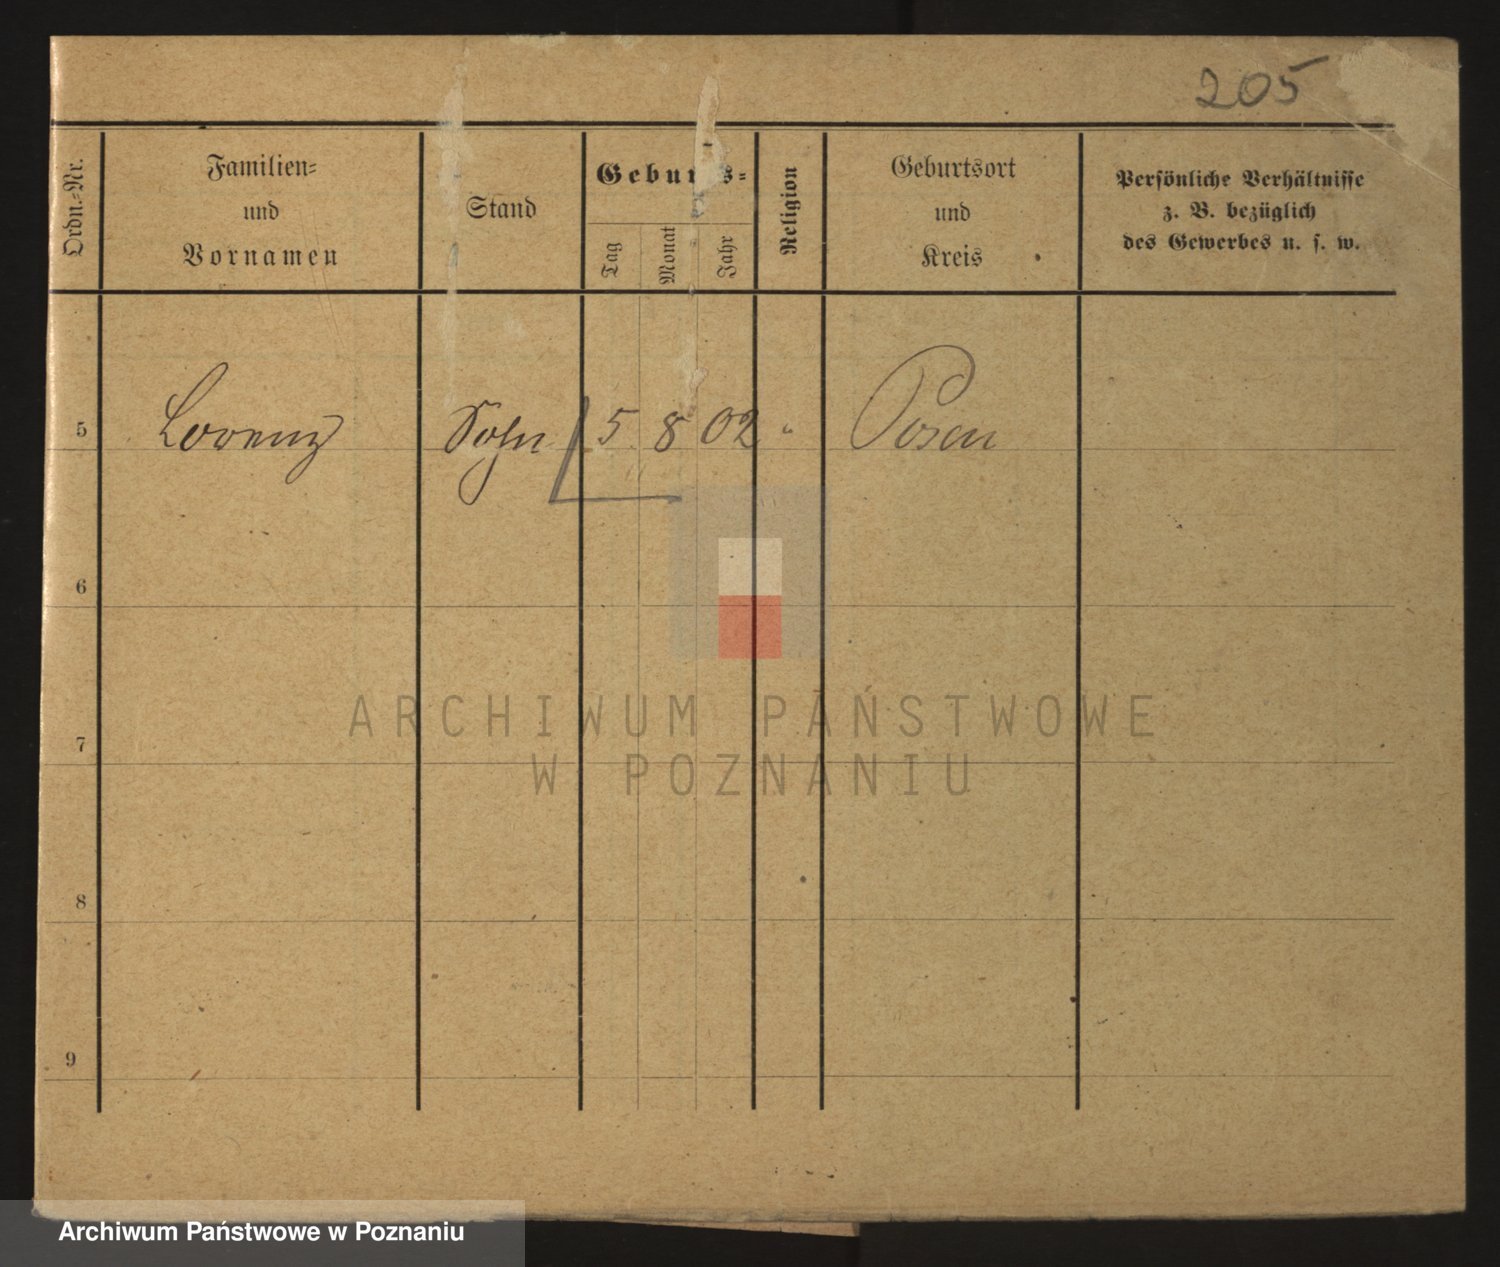 205
Ordn.-Nr.
Familien-
und
Vornamen
Stand
Geburts-
Tag
Monat
Jahr
Religion
Geburtsort
und
Kreis
Persönliche Verhältnisse
z. B. bezüglich
des Gewerbes u. s. w.
5 Lorenz Sohn 5 8 02 " Posen
6
7
8
9
ARCHIWUM PAŃSTWOWE
W POZNANIU
Archiwum Państwowe w Poznaniu